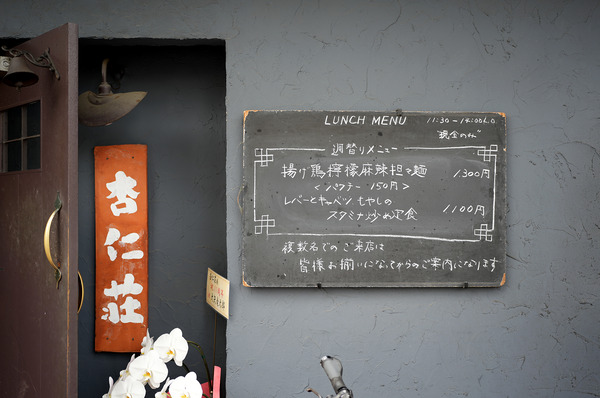 杏仁荘
LUNCH MENU
11:30-14:00 L.O
"現金のみ"
週替りメニュー
揚げ鶏檸檬麻辣担々麺 1300円
<パクチー 150円>
レバーとキャベツ もやしの
スタミナ炒め定食 1100円
複数名でのご来店は
皆様お揃いになってからのご案内になります